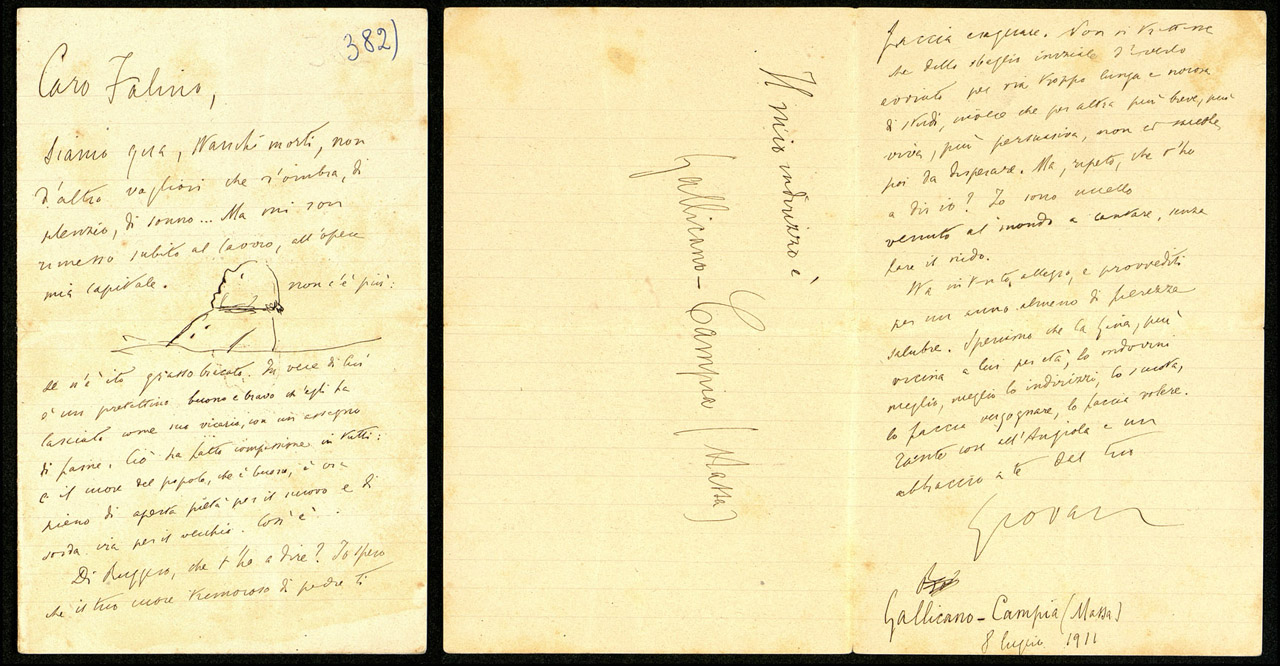 382)
Caro Falino,
siamo qua, stanchi morti, non
d'altro vogliosi che d'ombra, di
silenzio, di sonno... Ma mi son
rimesso subito al lavoro, all'opera
mia capitale.
non c'è più:
se n'è ito grasso bricato. In vece di lui
è un pretattino buono e bravo ch'egli ha
lasciato come suo vicario, con un assegno
di fame. Ciò ha fatto compassione in tutti:
e il cuore del popolo, che è buono, è ora
pieno di aperta pietà per il nuovo e di
sorda ira per il vecchio. Così è.
Di Ruggero, che t'ho a dire? Io spero
che il tuo cuore tremoroso di padre ti
Il mio indirizzo è
Gallicano-Campia (Massa)
faccia esagerare. Non si trattasse
che dello sbaglio iniziale d'averlo
avviato per via troppo lunga e noiosa
di studi, invece che per altra più breve, più
viva, più persuasiva, non ci
poi da disperare. Ma, ripeto, che t'ho
a dir io? Io sono uccello
venuto al mondo a cantare, senza
fare il nido.
Sta intanto allegro, e provvediti
per un anno almeno di fierezza
salubre. Speriamo che la Gina, più
vicina a lui per età, lo indovini
meglio, meglio lo indirizzi, lo scuota,
lo faccia vergognare, lo faccia volere.
Tante cose all'Angiola e un
abbraccio a te dal tuo
Giovanni
Gallicano-Campia (Massa)
8 luglio 1911